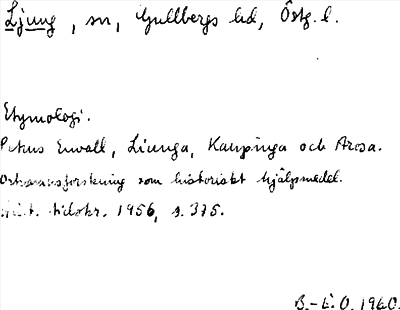 Ljung, sn, Gullbergs hd, Östg. l.
Etymologi.
Petrus Envall, Liunga, Kaupinga och Arosa.
Ortnamnsforskning som historiskt hjälpmedel.
Hist. tidskr. 1956, s. 375.
B.-E. O. 1960.